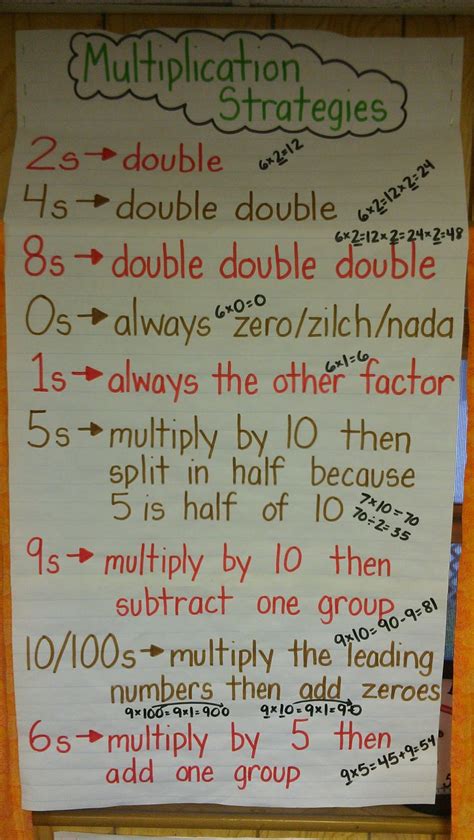 Multiplication
Strategies
2s → double 6x2=12
4s → double double 6x2=12x2=24
6x2=12x2=24x2=48
8s → double double double
6x0=0
0s → always zero/zilch/nada
6x1=6
1s → always the other factor
5s → multiply by 10 then
split in half because
5 is half of 10 7x10=70
70÷2=35
9s → multiply by 10 then
subtract one group
9x10=90-9=81
10/100s → multiply the leading
numbers then add zeroes
9x100=9x1=900 9x10=9x1=90
6s → multiply by 5 then
add one group 9x5=45+9=54